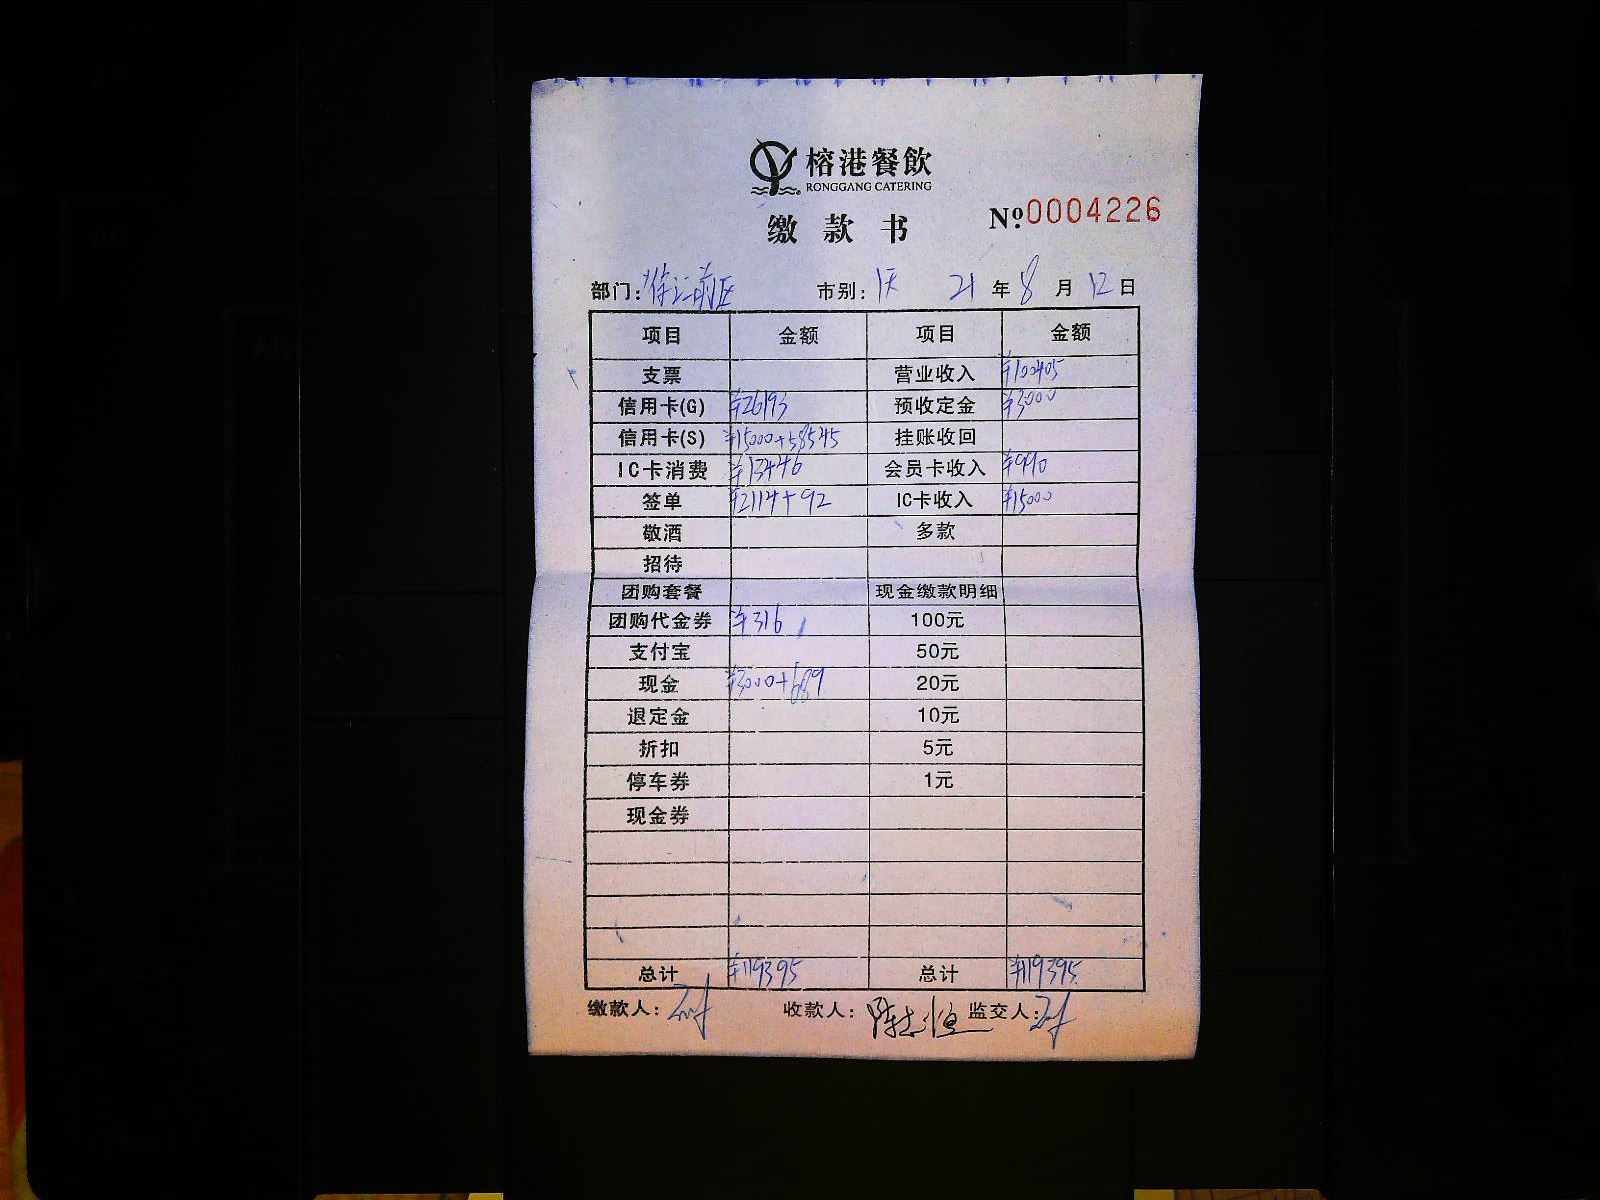 榕港餐飲
RONGGANG CATERING
缴款书
Nº:0004226
部门：徐汇前区 市别： 21 年 8 月 12 日
项目 金额 项目 金额
支票 营业收入 ¥100405
信用卡(G) ¥26193 预收定金 ¥3000
信用卡(S) ¥15000+58545 挂账收回
IC卡消费 ¥13446 会员卡收入 ¥990
签单 ¥2114+92 IC卡收入 ¥15000
敬酒 多款
招待
团购套餐 现金缴款明细
团购代金券 ¥316 100元
支付宝 50元
现金 ¥3000+689 20元
退定金 10元
折扣 5元
停车券 1元
现金券
总计 ¥119395 总计 ¥119395
缴款人： 收款人： 监交人：